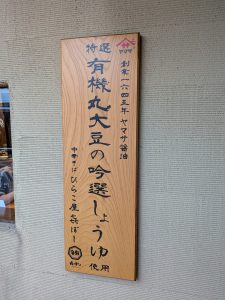 ヤマサ
創業一六四五年 ヤマサ醤油
特選
有機丸大豆の吟選しょうゆ
使用
中華そば ひらこ屋 きぼし